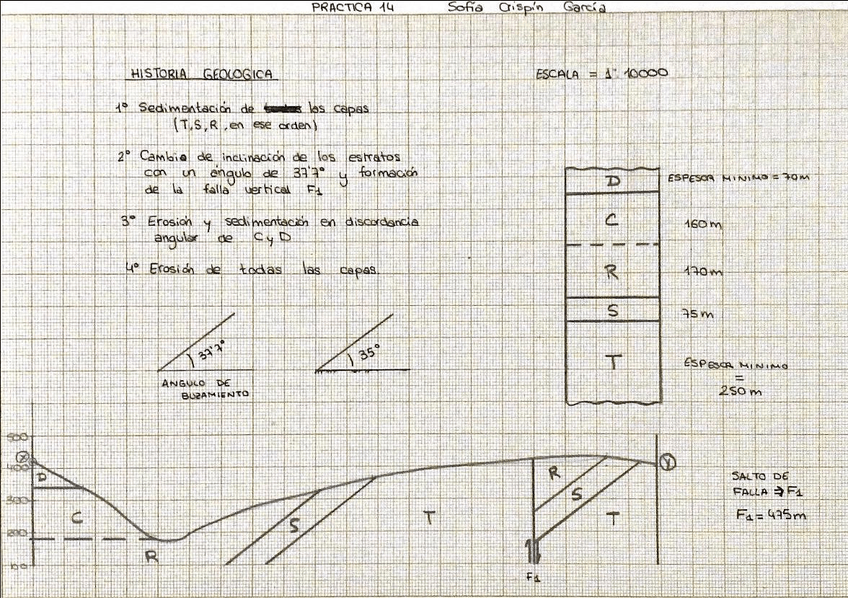 PRACTICA 14 Sofía Crispín García
HISTORIA GEOLOGICA
ESCALA = 1:10000
1º Sedimentación de las capas
(T,S,R, en ese orden)
2º Cambio de inclinación de los estratos
con un ángulo de 37'7° y formación
de la falla vertical F1
3º Erosión y sedimentación en discordancia
angular de C y D
4º Erosión de todas las capas.
D ESPESOR MINIMO = 70m
C 160m
R 170m
S 75m
T ESPESOR MINIMO
=
250m
37'7°
35°
ANGULO DE
BUZAMIENTO
500
400
300
200
100
X
D
C
R
S
T
R
S
T
F1
Y
SALTO DE
FALLA ⇒ F1
F1 = 475m